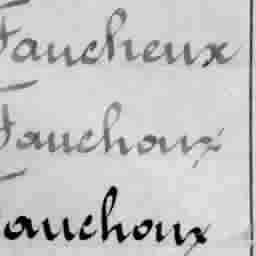 Faucheux
Fauchoux
Fauchoux